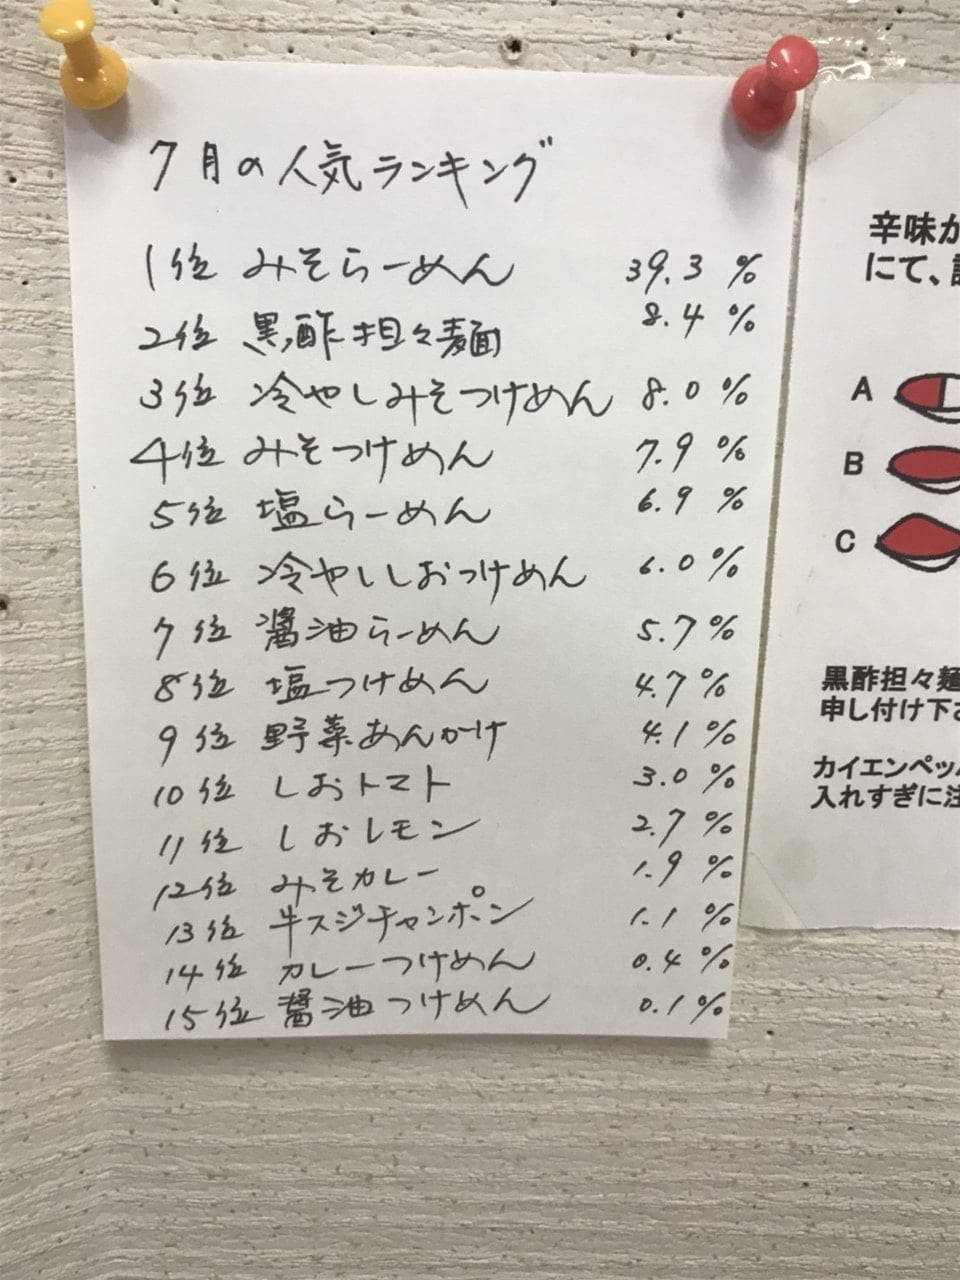 7月の人気ランキング
1位 みそらーめん 39.3%
2位 黒酢担々麺 8.4%
3位 冷やしみそつけめん 8.0%
4位 みそつけめん 7.9%
5位 塩らーめん 6.9%
6位 冷やししおつけめん 6.0%
7位 醤油らーめん 5.7%
8位 塩つけめん 4.7%
9位 野菜あんかけ 4.1%
10位 しおトマト 3.0%
11位 しおレモン 2.7%
12位 みそカレー 1.9%
13位 牛スジチャンポン 1.1%
14位 カレーつけめん 0.4%
15位 醤油つけめん 0.1%
辛味が
にて、
A
B
C
黒酢担々麺
申し付け下さ
カイエンペッパ
入れすぎに注